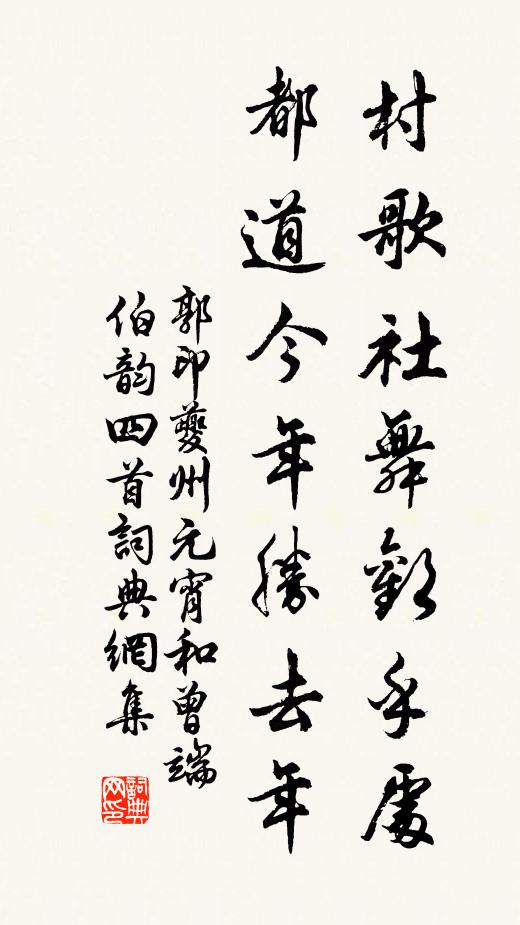 村歌社舞歡乎處
都道今年勝去年
郭印夔州元宵和曾端
伯韵四首詞典網集
詞典
网印